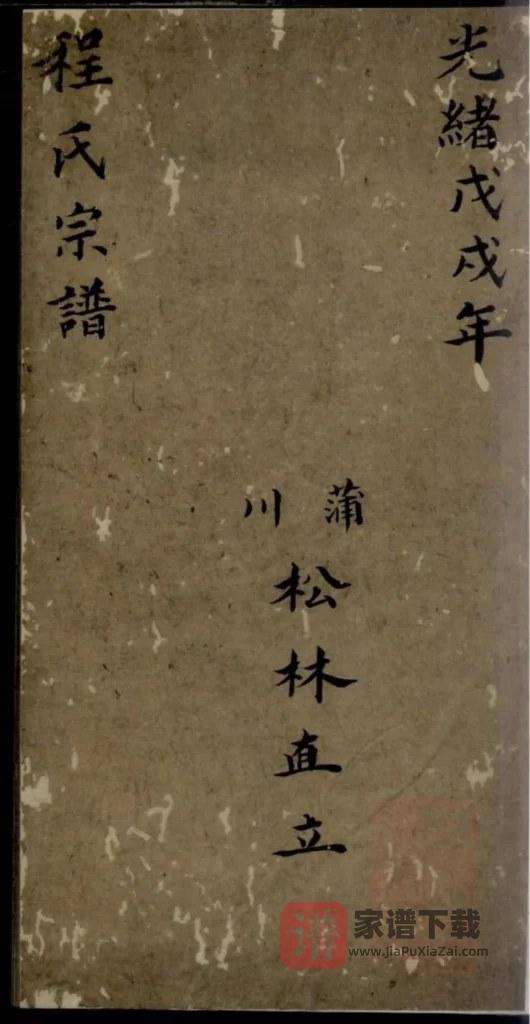 光緒戊戌年
蒲川
松林直立
程氏宗譜
譜
家谱下载
www.JiaPuXiaZai.com